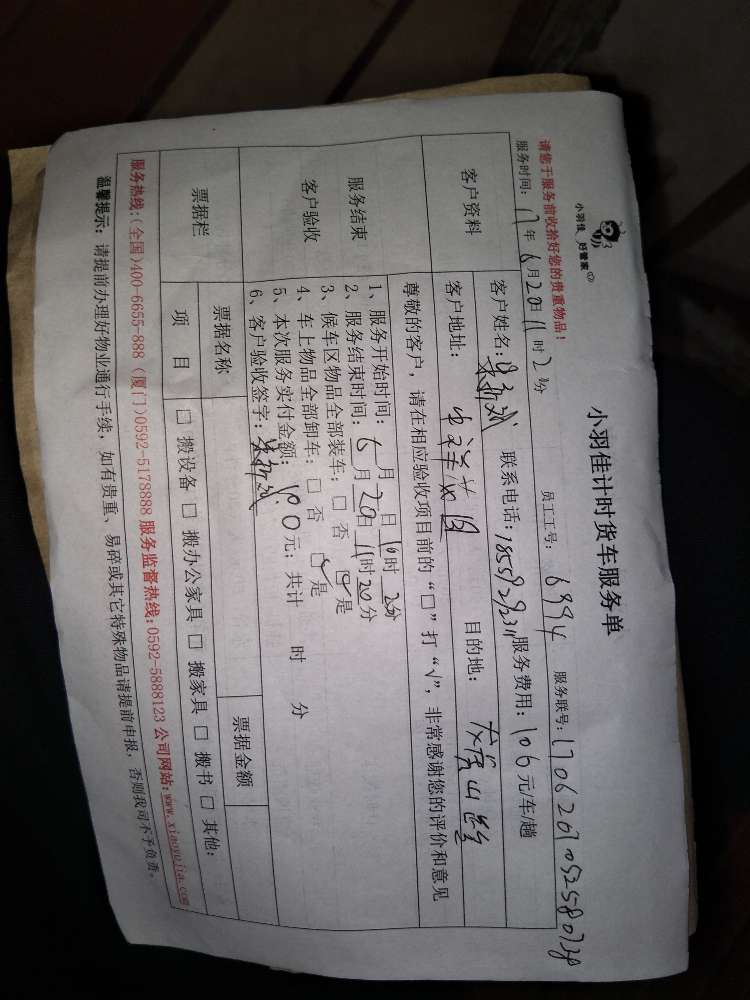 小羽佳计时货车服务单
小羽佳 好管家
请您于服务前收拾好您的贵重物品！
员工工号：6994 服务联号：
服务时间：17年6月20日11时2分
客户资料 客户姓名： 联系电话： 服务费用：106元/车/趟
客户地址： 目的地：
尊敬的客户，请在相应验收项目前的“□”打“√”，非常感谢您的评价和意见
服务结束
客户验收
1、服务开始时间： 月 日10时 分
2、服务结束时间：6月20日11时20分
3、候车区物品全部装车：□ 否 ☑ 是
4、车上物品全部卸车：□ 否 ☑ 是
5、本次服务实付金额： 元；共计 时 分
6、客户验收签字：
票据栏 票据名称 票据金额
项 目 □ 搬设备 □ 搬办公家具 □ 搬家具 □ 搬书 □ 其他：
服务热线：(全国)400-6655-888 (厦门)0592-5178888 服务监督热线：0592-5888123 公司网站：www.xiaoyujia.com
温馨提示：请提前办理好物业通行手续，如有贵重、易碎或其它特殊物品请提前申报，否则我司不予负责。